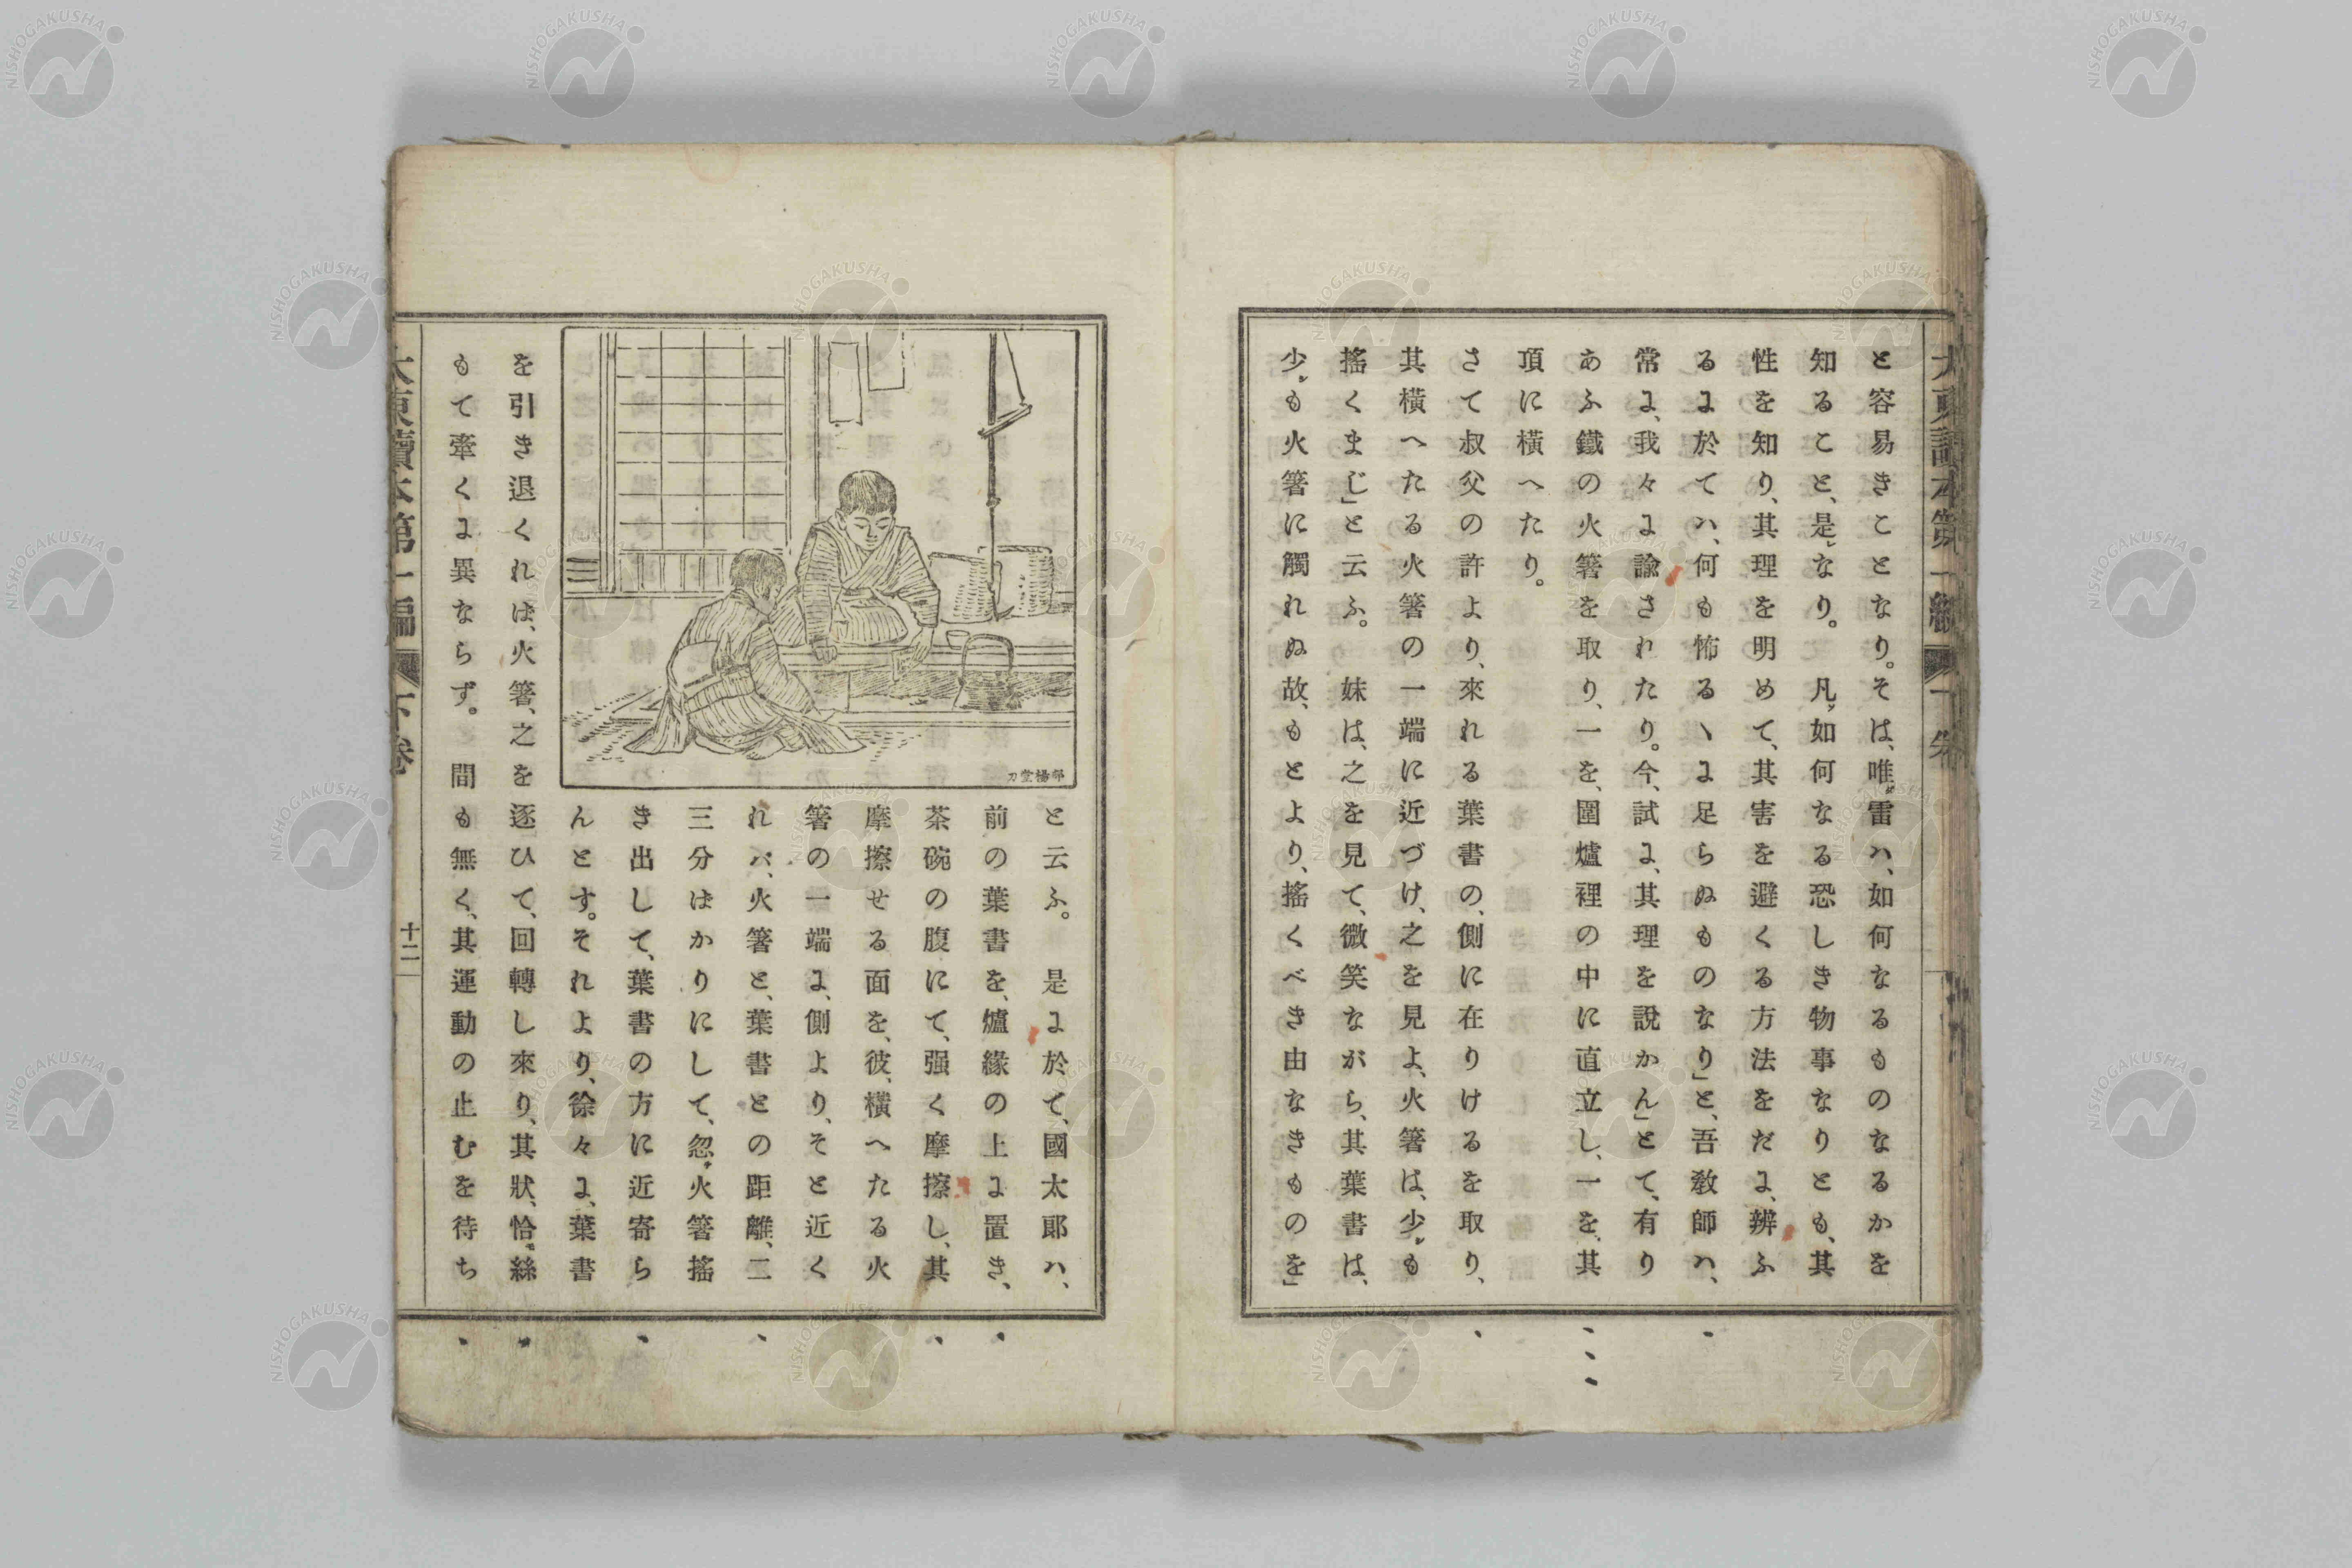 と容易きことなり。そは、唯雷ハ、如何なるものなるかを
知ること、是なり。凡如何なる恐しき物事なりとも、其
性を知り、其理を明めて、其害を避くる方法をだに、辨ふ
るに於てハ、何も怖るヽに足らぬものなり」と、吾敎師ハ、
常に、我々に諭されたり。今、試に、其理を說かん」とて、有り
あふ鐵の火箸を取り、一を、圍爐裡の中に直立し、一を、其
頂に橫へたり。
さて叔父の許より、來れる葉書の、側に在りけるを取り、
其橫へたる火箸の一端に近づけ、之を見よ、火箸は、少も
搖くまじ」と云ふ。妹は、之を見て、微笑ながら、其葉書は、
少も火箸に觸れぬ故、もとより、搖くべき由なきものを」
と云ふ。是に於て、國太郎ハ、
前の葉書を、爐緣の上に置き、
茶碗の腹にて、强く摩擦し、其
摩擦せる面を、彼、橫へたる火
箸の一端に、側より、そと近く
れバ、火箸と、葉書との距離、二
三分はかりにして、忽火箸搖
き出して、葉書の方に近寄ら
んとす。それより、徐々に、葉書
を引き退くれは、火箸、之を逐ひて、回轉し來り、其狀、恰絲
もて牽くに異ならず。間も無く、其運動の止むを待ち
大東讀本第一編 下卷
十二
NISHOGAKUSHA